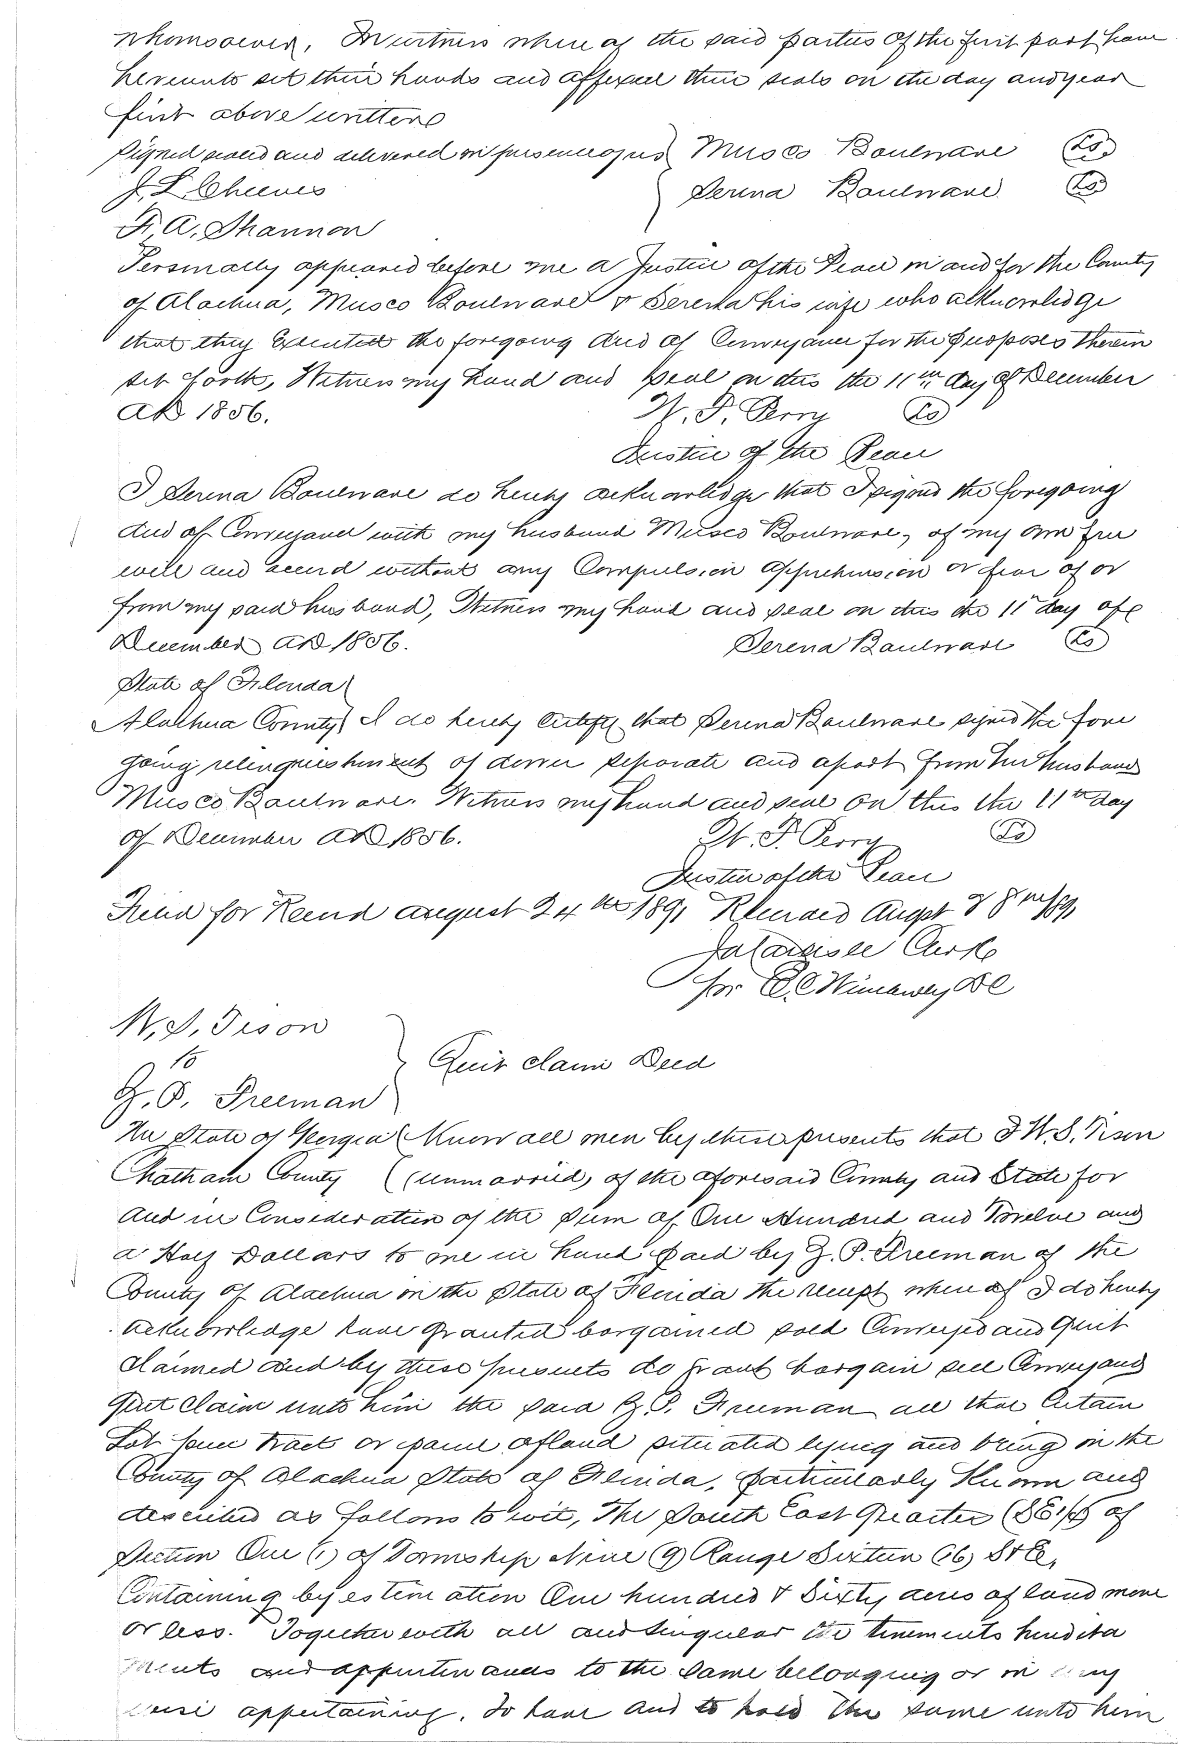 whomsoever, In witness where of the said parties of the first part have
hereunto set their hands and affixed their seals on the day and year
first above written
Signed sealed and delivered in presence of us } Musco Boulware (LS)
J. L. Cheeves } Serena Boulware (LS)
F. A. Shannon
Personally appeared before me a Justice of the Peace in and for the County
of Alachua, Musco Boulware & Serena his wife who acknowledge
that they Executed the foregoing deed of Conveyance for the purposes therein
set forth, Witness my hand and seal on this the 11th day of December
AD 1856. W. F. Perry (LS)
Justice of the Peace
I Serena Boulware do hereby acknowledge that I signed the foregoing
deed of Conveyance with my husband Musco Boulware, of my own free
will and accord without any Compulsion apprehension or fear of or
from my said husband, Witness my hand and seal on this the 11th day of
December AD 1856. Serena Boulware (LS)
State of Florida }
Alachua County } I do hereby certify that Serena Boulware signed the fore
going relinquishment of dower separate and apart from her husband
Musco Boulware. Witness my hand and seal on this the 11th day
of December AD 1856. W. F. Perry (LS)
Justice of the Peace
Filed for Record august 24th 1891 Recorded Augst 28th 1891
J A Carlisle Clerk
for DC
W. S. Tison
to } Quit claim Deed
Z. P. Freeman
The State of Georgia ( Know all men by these presents that I W. S. Tison
Chatham County ( (unmarried) of the aforesaid County and State for
and in Consideration of the sum of One Hundred and Twelve and
a Half Dollars to me in hand paid by Z. P. Freeman of the
County of Alachua in the State of Florida the receipt where of I do hereby
acknowledge have granted bargained sold Conveyed and Quit
claimed and by these presents do grant bargain sell Convey and
quit claim unto him the said Z. P. Freeman all that Certain
Lot piece tract or parcel of land situated lying and being in the
County of Alachua State of Florida, particularly Known and
described as follows to wit, The South East Quarter (SE 1/4) of
Section One (1) of Township Nine (9) Range Sixteen (16) S & E,
Containing by estimation One hundred & Sixty acres of land more
or less. Together with all and singular the tenements heredita
ments and appurtenances to the same belonging or in any
wise appertaining, To have and to hold the same unto him